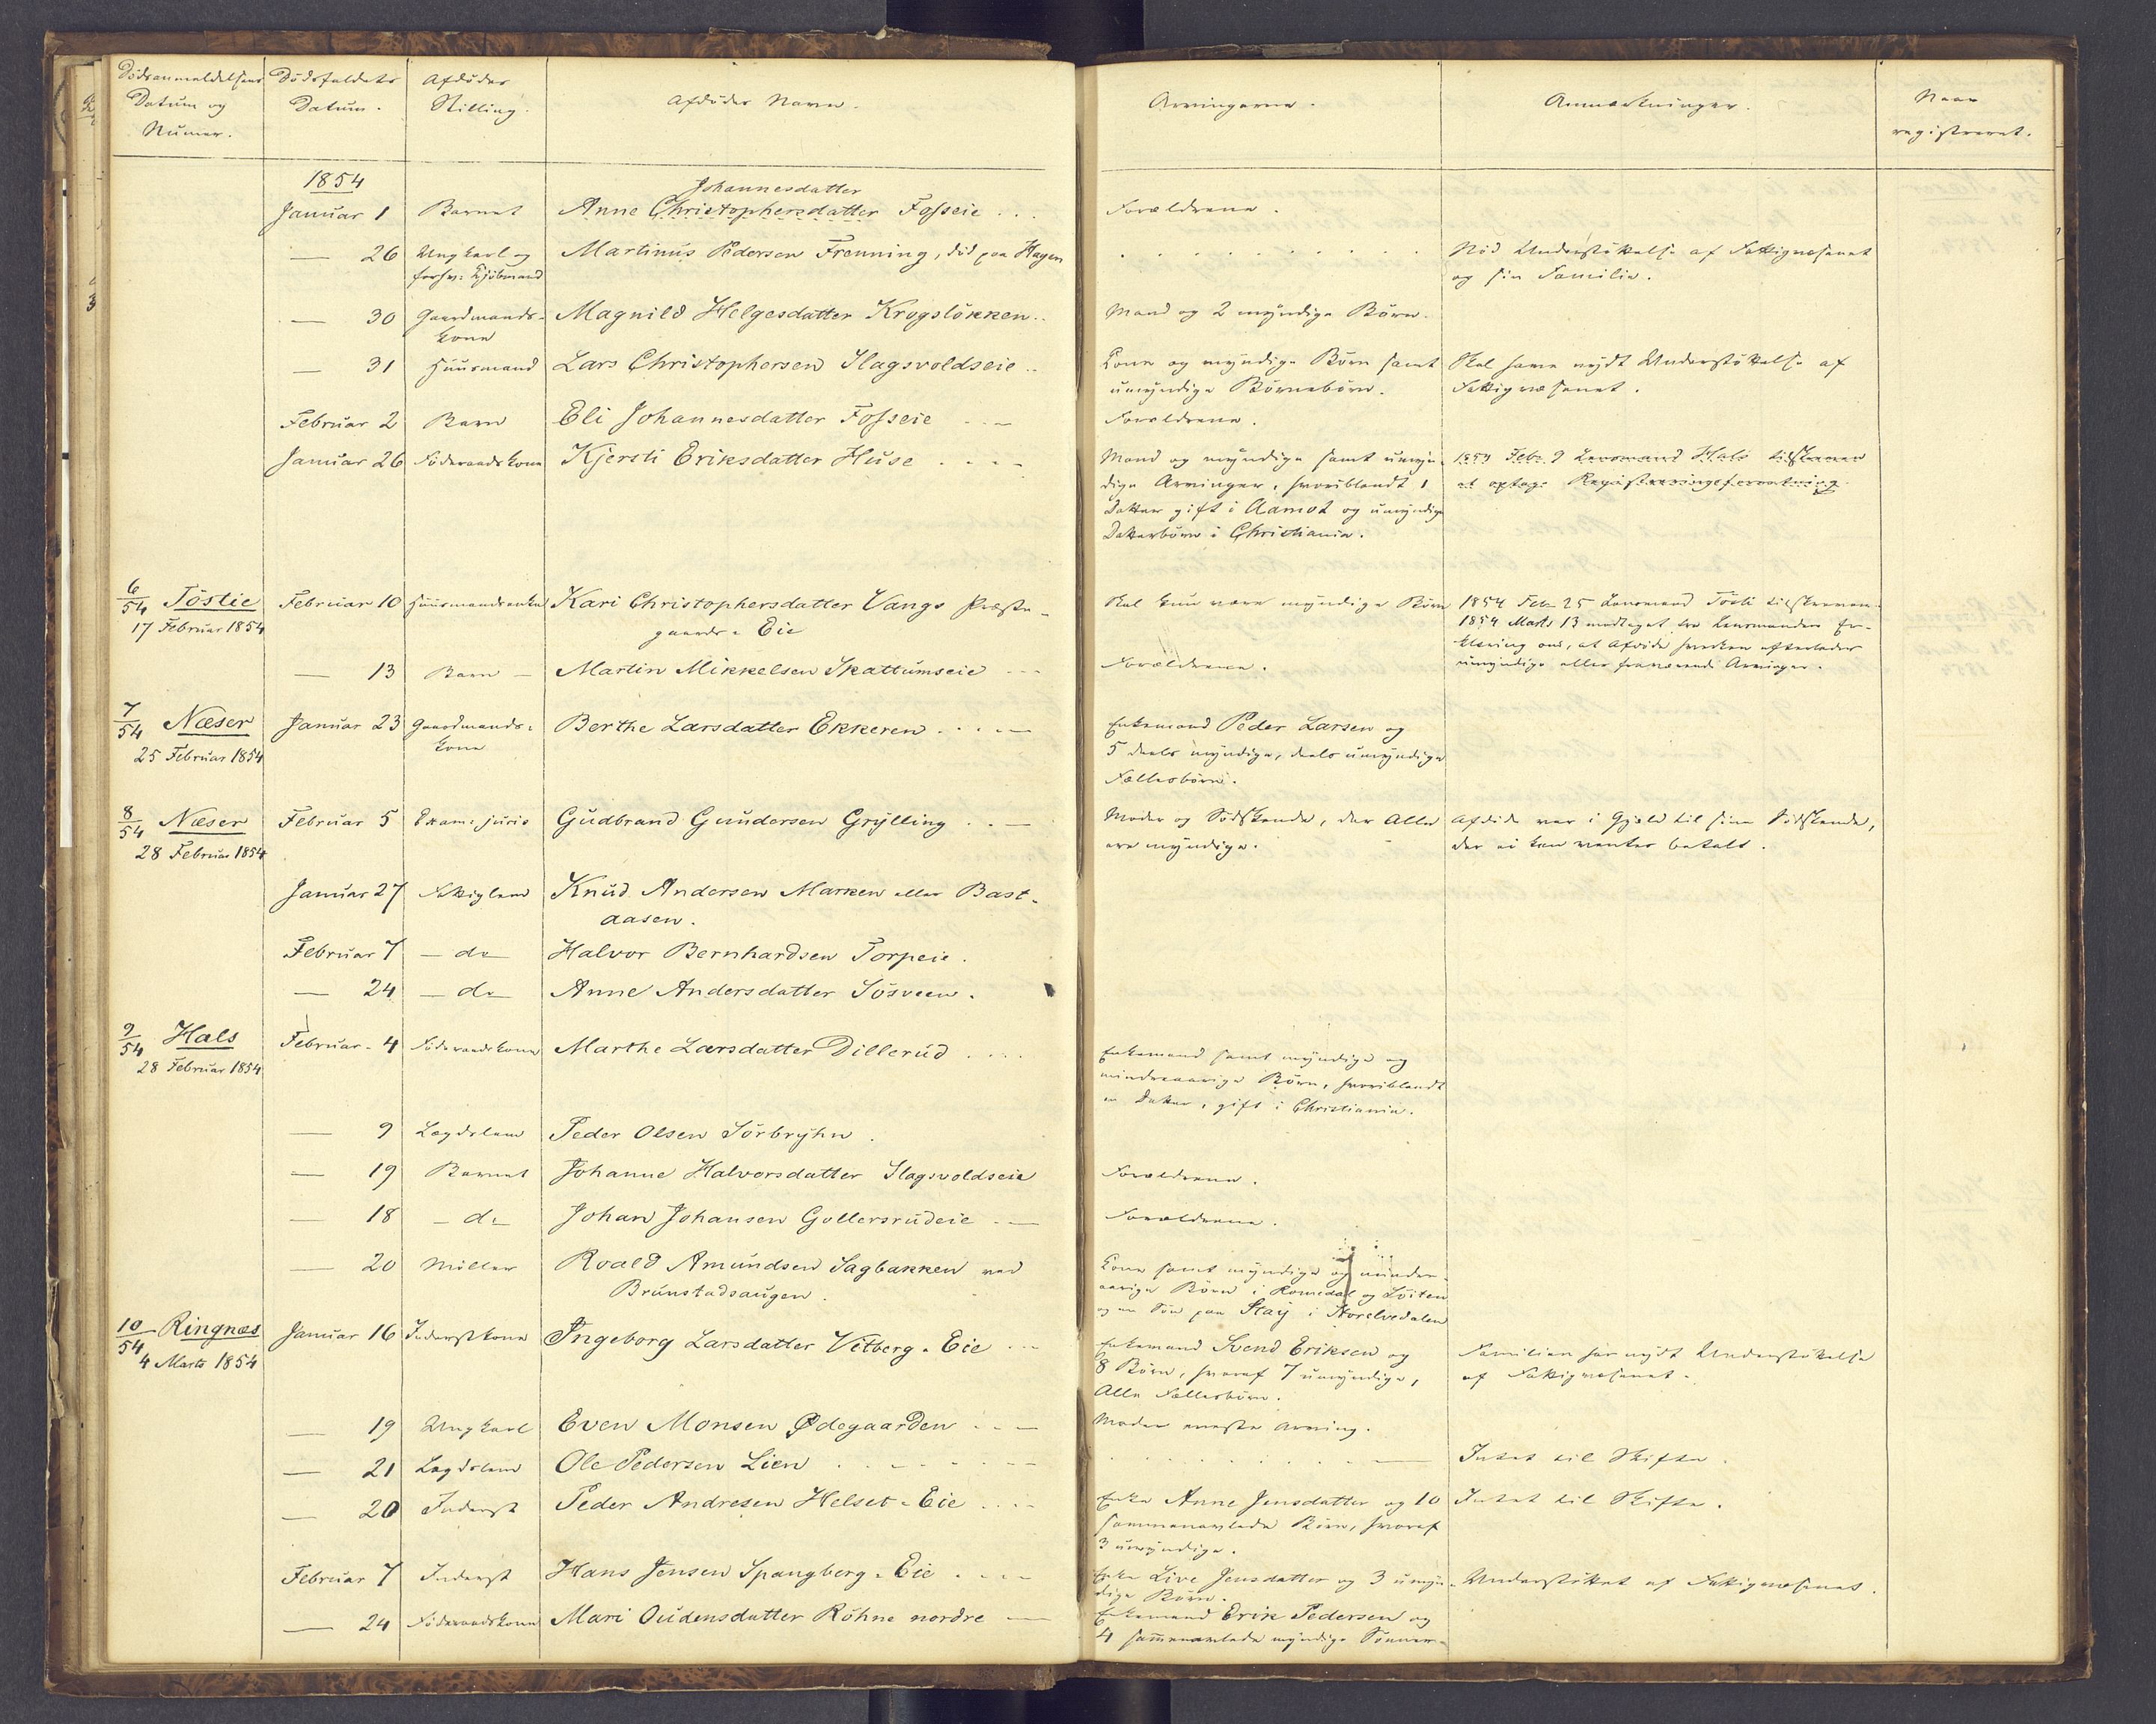 Dödsanmeldelsens Datum og Numer.
Dödsfaldets Datum.
Afdödes Stilling.
Afdödes Navn.
Arvingerne.
Anmærkninger.
Naar registreret.
1854
Johannesdatter
Januar 1 Barnet Anne Christophersdatter Fosseie . . . Forældrene.
— 26 Ungkarl og Martinus Pedersen Frenning, död paa Hagen . . . . . . . . . Nöd Understöttelse af Fattigvæsenet
forhv: Kjöbmand og sin Familie.
— 30 Gaardmands- Magnild Helgesdatter Krogslökken . . Mand og 2 myndige Börn.
kone
— 31 Huusmand Lars Christophersen Slagsvoldseie . . Kone og myndige Börn samt Skal have nydt Understöttelse af
umyndige Börnebörn. Fattigvæsenet.
Februar 2 Barn Eli Johannesdatter Fosseie . . — Forældrene.
Januar 26 Föderaadskone Kjersti Eriksdatter Huse . . . . Mand og myndige samt umyn- 1854 Febr 9 Lensmand Hals tilskreven
dige Arvinger, hvoriblandt 1 at optage Registreringsforretning
Datter gift i Aamot og umyndige
Datterbörn i Christiania.
6/54 Töstie Februar 10 Huusmandsenke Kari Christophersdatter Vangs Præste- Skal kun være myndige Börn 1854 Feb 25 Lensmand Töstie tilskreven
17 Februar 1854 gaards-Eie 1854 Marts 13 modtaget fra Lensmanden Er-
klæring om, at Afdöde hverken efterlader
— 13 Barn — Martin Mikkelsen Skattumseie . . . Forældrene. umyndige eller fraværende Arvinger.
7/54 Næser Januar 23 Gaardmands- Berthe Larsdatter Ekkeren . . . . — Enkemand Peder Larsen og
25 Februar 1854 kone 5 deels myndige, deels umyndige
Fællesbörn.
8/54 Næser Februar 5 Exam: juris Gudbrand Gundersen Grylling . . — Moder og Södskende, der Alle Afdöde var i Gjæld til sine Södskende,
28 Februar 1854 ere myndige. der ei kan ventes betalt.
Januar 27 Fattiglem Knud Andersen Marken eller Bast-
aasen.
Februar 7 — do — Halvor Bernhardsen Torpeie.
— 24 — do — Anne Andersdatter Sösveen.
9/54 Hals Februar 4 Föderaadskone Marthe Larsdatter Dillerud . . . . Enkemand samt myndige og
28 Februar 1854 mindreaarige Börn, hvoriblandt
en Datter, gift i Christiania.
— 9 Lægdslem Peder Olsen Sörbryhn.
— 19 Barnet Johanne Halvorsdatter Slagsvoldseie Forældrene.
— 18 — do — Johan Johansen Gollersrudeie . — Forældrene.
— 20 Möller Roald Amundsen Sagbakken ved Kone samt myndige og mindre-
Brunstadsaugen. aarige Börn i Romedal og Löiten
og en Sön paa Staj i Storelvedalen
10/54 Ringnæs Januar 16 Inderstkone Ingeborg Larsdatter Vitberg-Eie . . . Enkemand Svend Eriksen og Familien har nydt Understöttelse
4 Marts 1854 8 Börn, hvoraf 7 umyndige, af Fattigvæsenet.
Alle Fællesbörn.
— 19 Ungkarl Even Monsen Ødegaarden . . — Moder eneste Arving.
— 21 Lægdslem Ole Pedersen Lien . . . . . . . . . . . . Intet til Skifte.
— 20 Inderst Peder Andresen Helset-Eie . . . . Enke Anne Jensdatter og 10 Intet til Skifte.
sammenavlede Börn, hvoraf
3 umyndige.
Februar 7 Inderst Hans Jensen Spangberg-Eie . . . . Enke Live Jensdatter og 3 umyn- Understöttet af Fattigvæsenet.
dige Börn.
— 24 Föderaadskone Mari Oudensdatter Röhne nordre — Enkemand Erik Pedersen og
4 sammenavlede myndige Sönner.